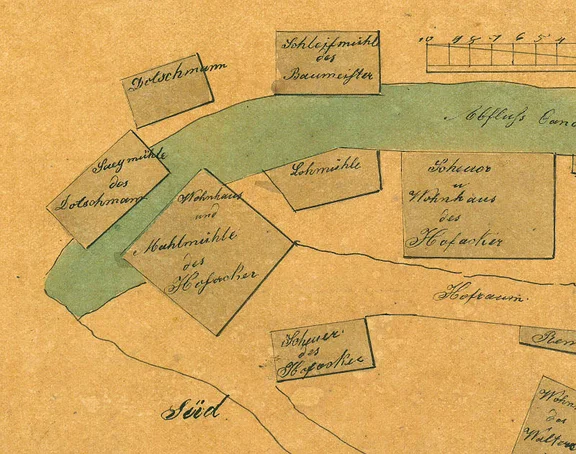 10 9 8 7 6 5 4
Schleifmühle
des
Baumeister
Dotschmann
Abfluß Cana
Saegmühle
des
Dotschmann
Lohmühle
Scheuer
u
Wohnhaus
des
Hofacker
Wohnhaus
und
Mahlmühle
des
Hofacker
Hofraum.
Scheuer
des
Hofacker
Rem
Wohn
des
Walter
Süd